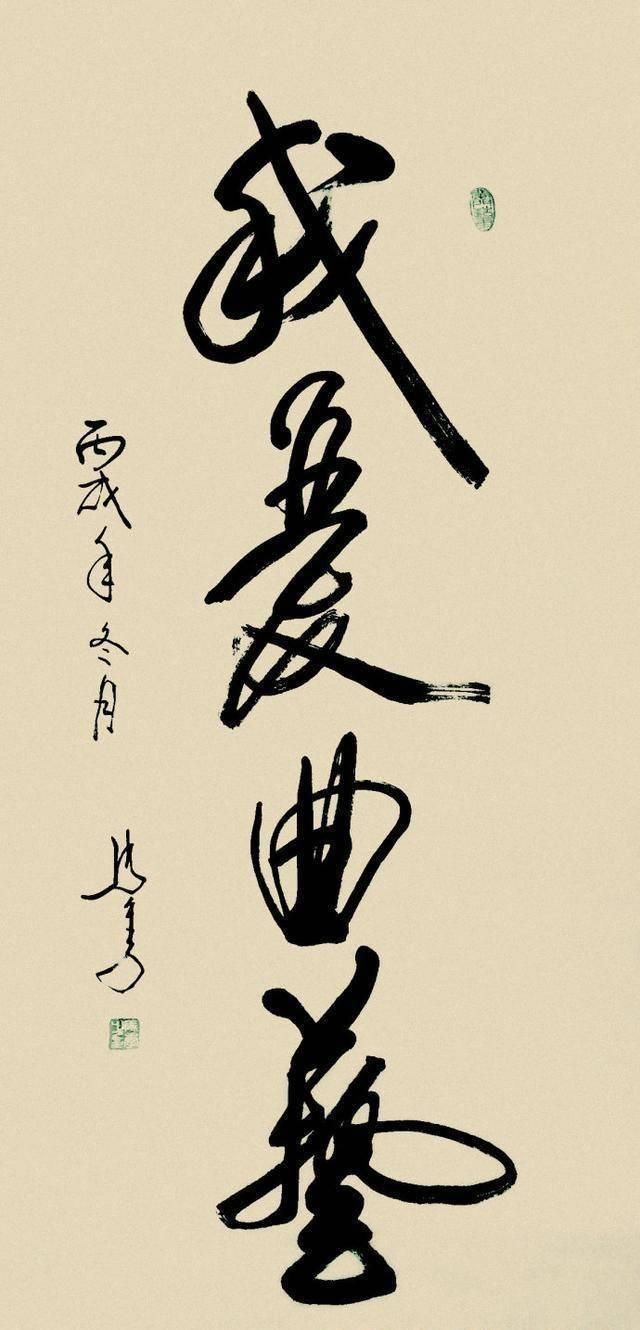 我爱曲藝
丙戌年冬月